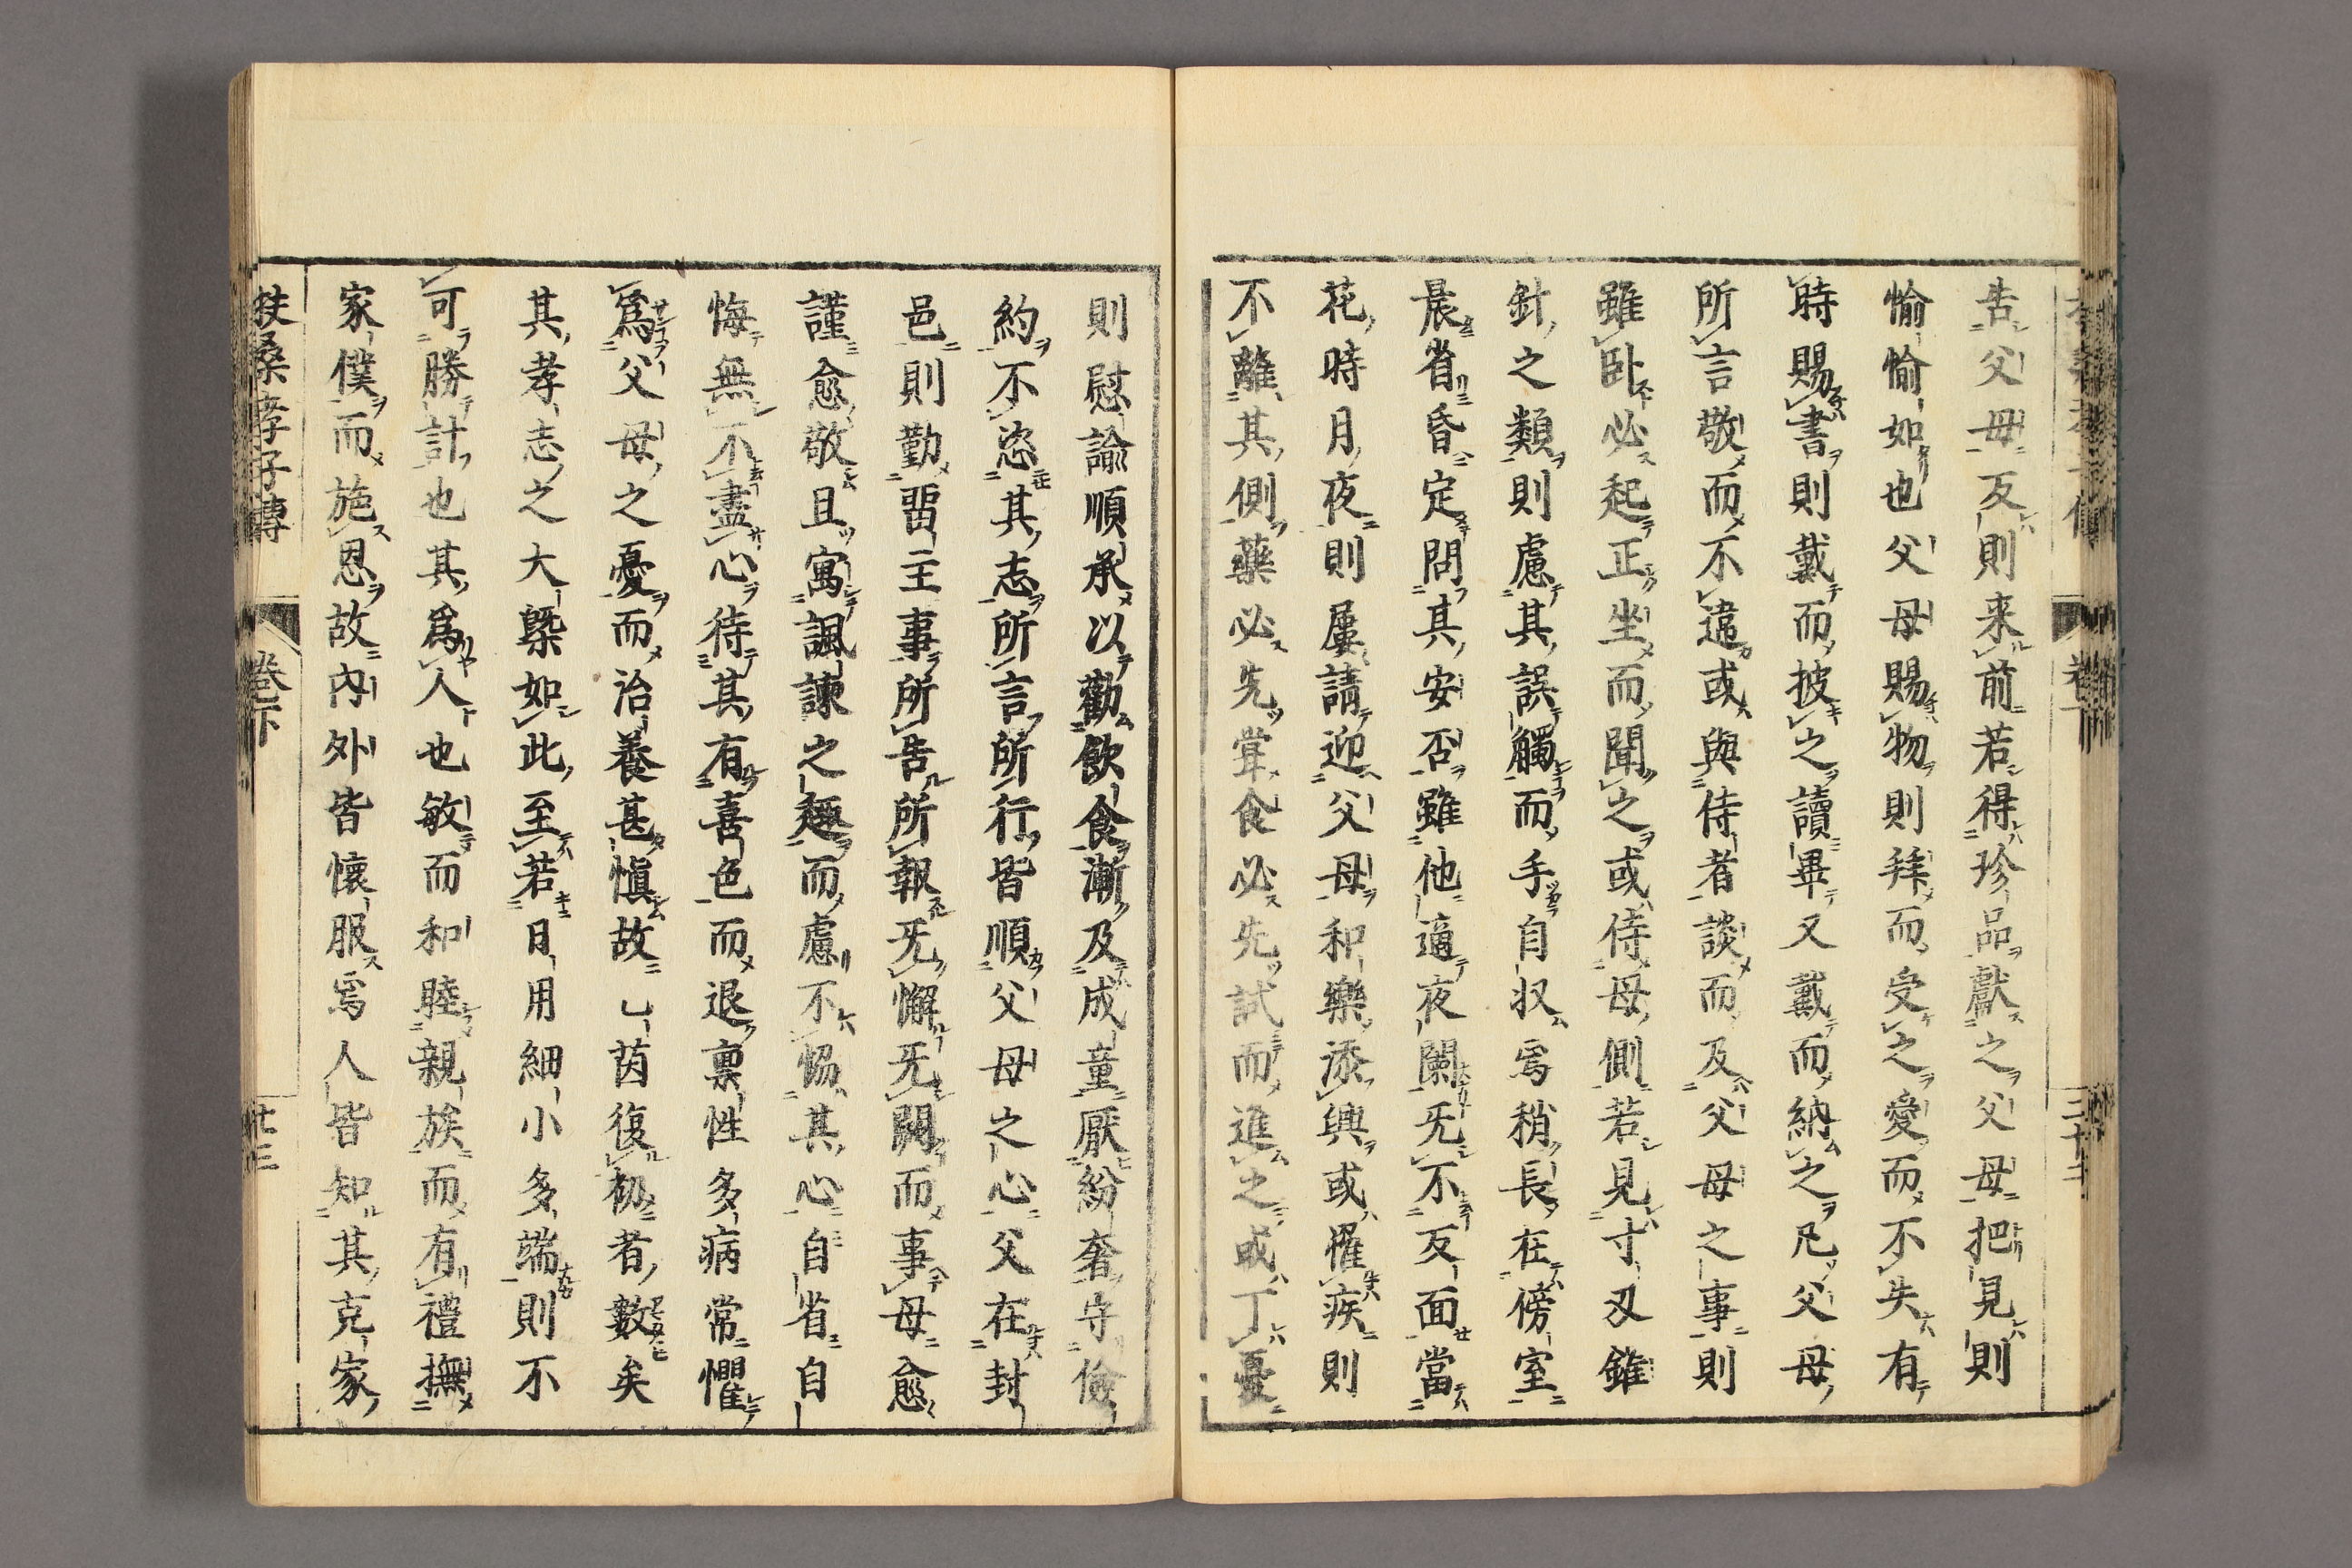 告父母反則来前若得珍品獻之父母把見則
愉愉如也父母賜物則拜而受之愛而不失有
時賜書則戴而披之讀畢又戴而納之凡父母
所言敬而不違或與侍者談而及父母之事則
雖卧必起正坐而聞之或侍母側若見寸刄錐
針之類則慮其誤觸而手自収焉稍長在傍室
晨省昏定問其安否雖他適夜闌旡不反面當
花時月夜則屢請迎父母和樂添興或罹疾則
不離其側藥必先甞食必先試而進之或丁憂
則慰諭順承以勸飲食漸及成童厭紛奢守儉
約不恣其志所言所行皆順父母之心父在封
邑則勤畱主事所告所報旡懈旡闕而事母愈
謹愈敬且寓諷諫之趣而慮不惱其心自省自
悔無不盡心待其有喜色而退禀性多病常懼
爲父母之憂而治養甚愼故乚茵復初者數矣
其孝志之大槩如此至若日用細小多端則不
可勝計也其爲人也敏而和睦親族而有禮撫
家僕而施恩故內外皆懷服焉人皆知其克家
扶桑孝子傳
卷下
廿三